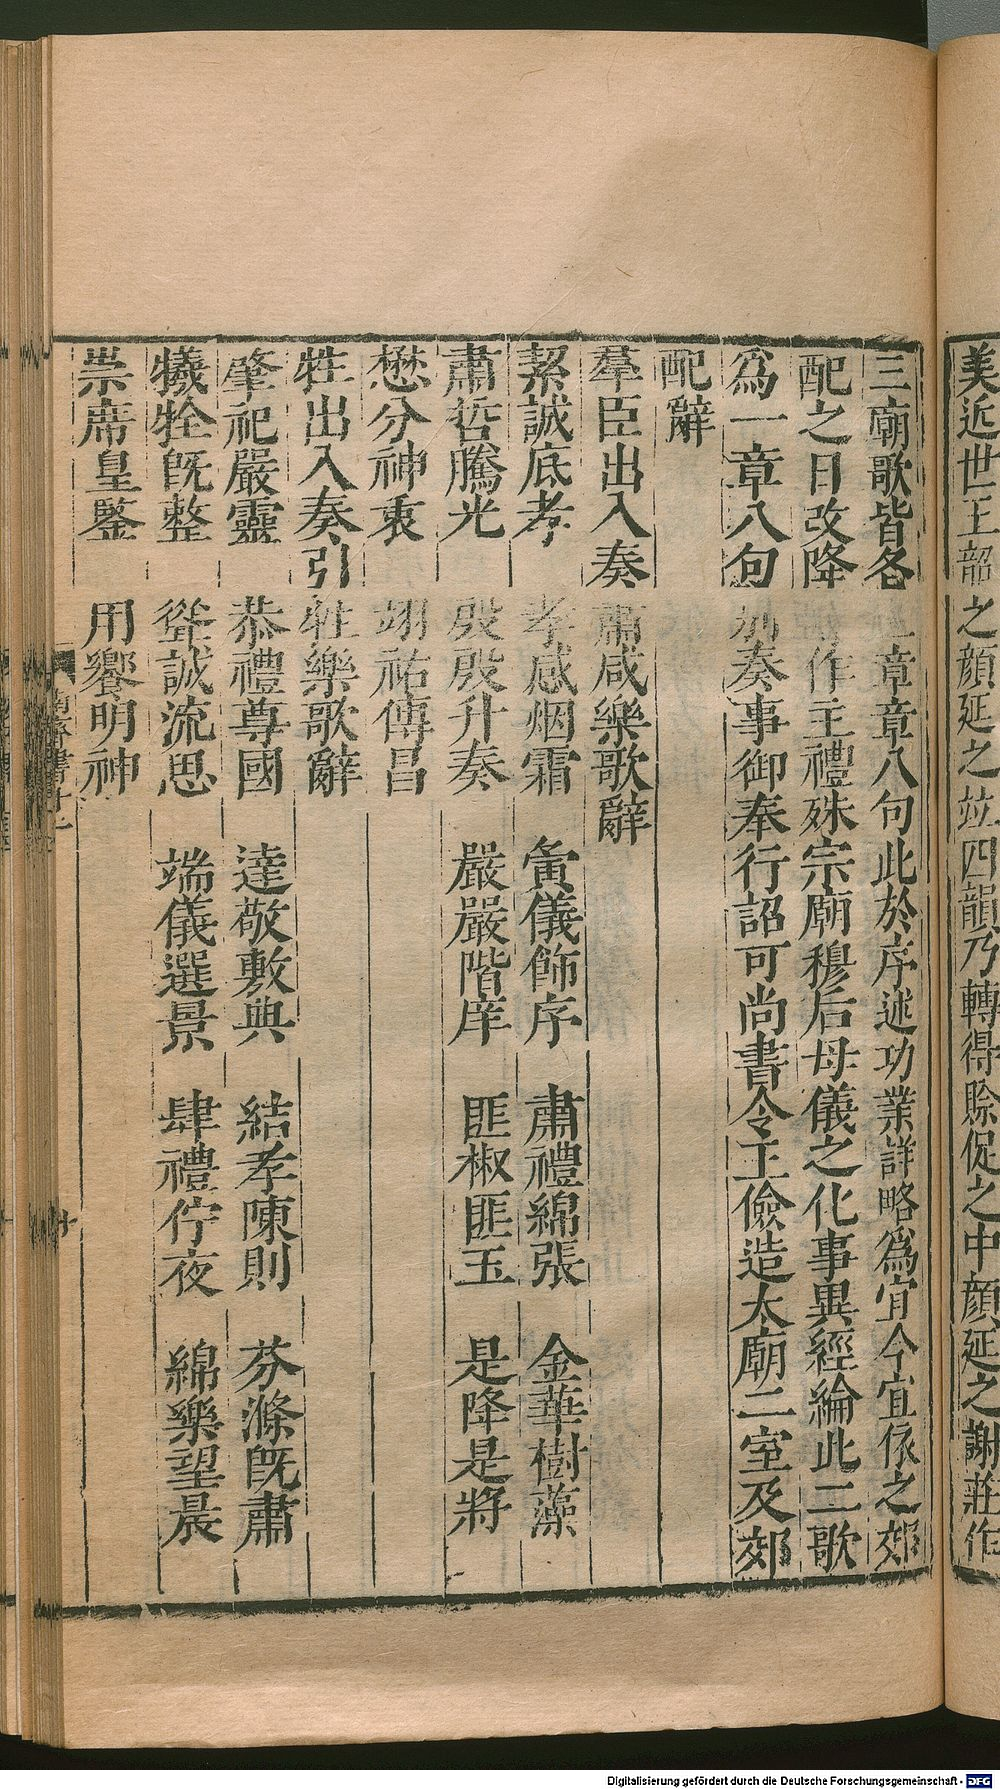 美近世王韶之顏延之竝四韻乃轉得賖促之中顏延之謝莊作
三廟歌皆各三章章八句此於序述功業詳略爲宜今宜依之郊
配之日改降作主禮殊宗廟穆后母儀之化事異經綸此二歌
爲一章八句別奏事御奉行詔可尚書令王儉造太廟二室及郊
配辭
羣臣出入奏肅咸樂歌辭
絜誠底孝 孝感烟霜 夤儀飾序 肅禮綿張 金華樹藻
肅哲騰光 殷殷升奏 嚴嚴階庠 匪椒匪玉 是降是將
懋分神衷 翊祐傳昌
牲出入奏引牲樂歌辭
肇祀嚴靈 恭禮尊國 達敬敷典 結孝陳則 芬滌旣肅
犧牷旣整 聳誠流思 端儀選景 肆禮佇夜 綿樂望晨
崇席皇鑒 用饗明神
南齊書十一
Digitalisierung gefördert durch die Deutsche Forschungsgemeinschaft - DFG